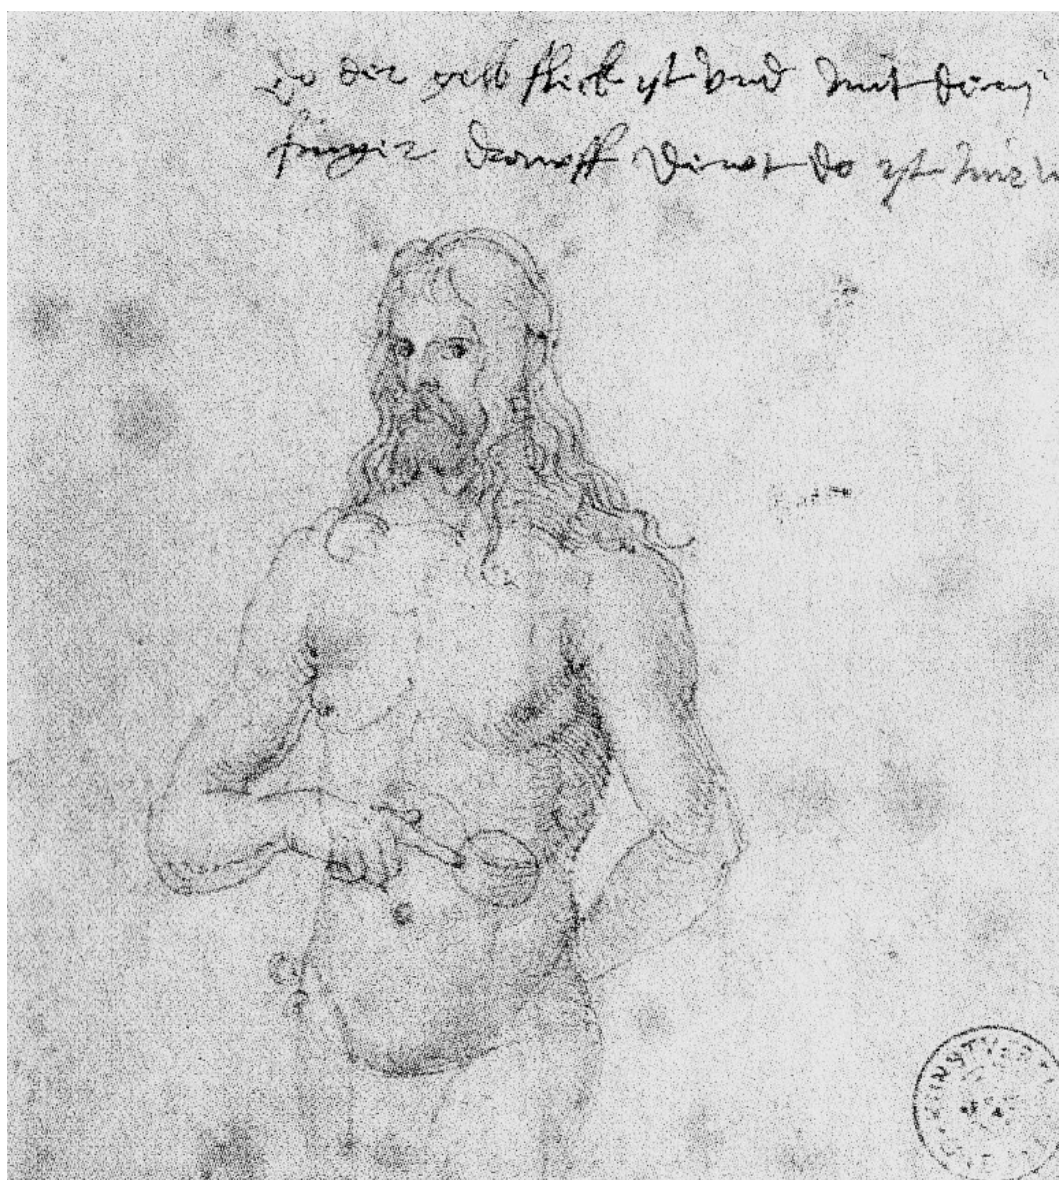 Do der gelb fleck ist vnd mit dem
finger drawff dewt do ist mir we
KUNSTVER